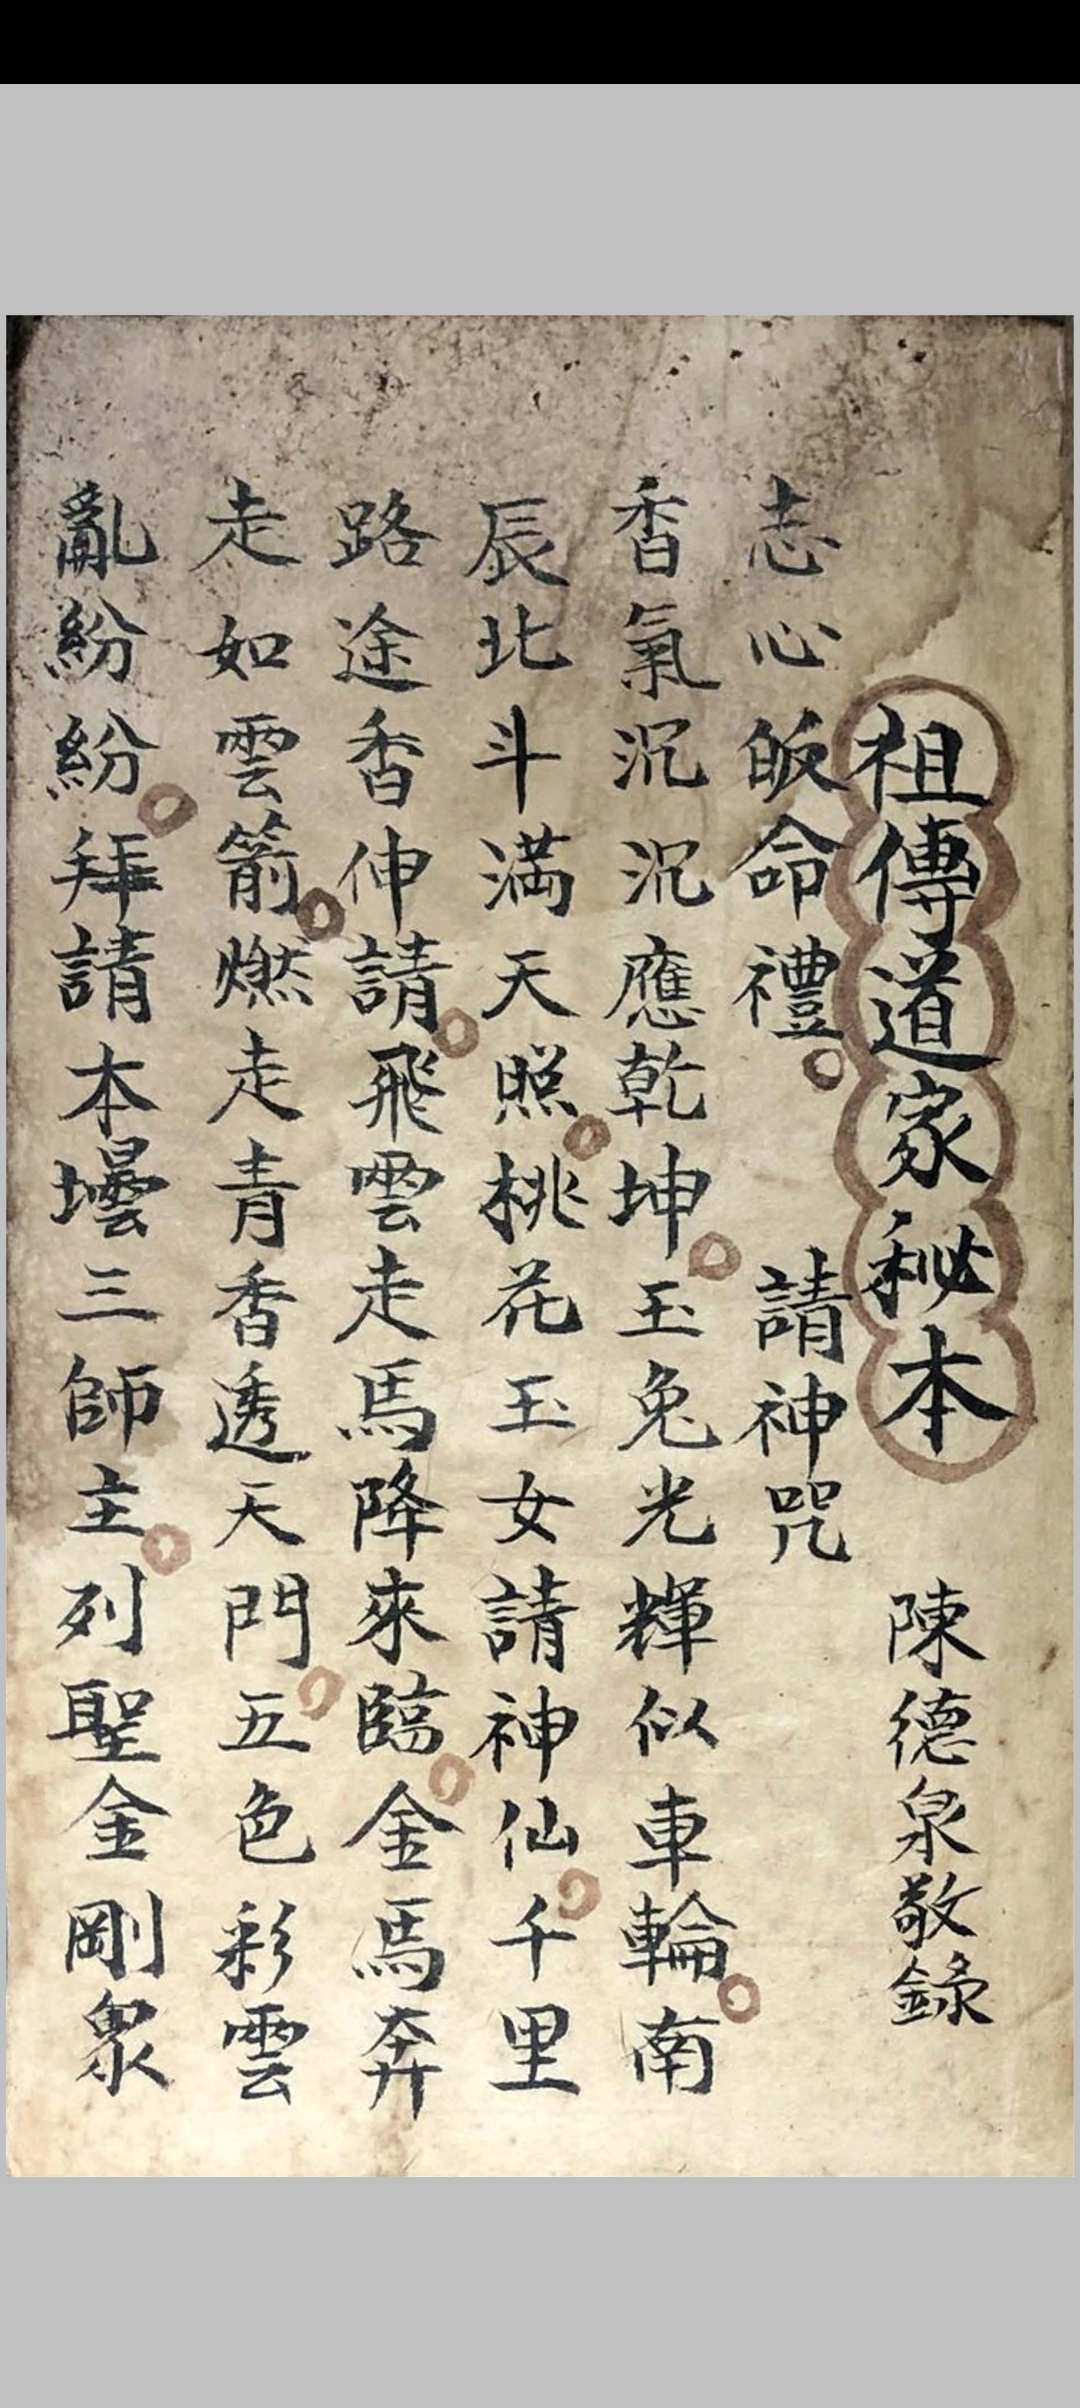 祖傳道家秘本　陳德泉敬錄
志心皈命禮　請神咒
香氣沉沉應乾坤玉兔光輝似車輪南
辰北斗滿天照桃花玉女請神仙千里
路途香伸請飛雲走馬降來臨金馬奔
走如雲箭燃走青香透天門五色彩雲
亂紛紛拜請本壇三師主列聖金剛眾